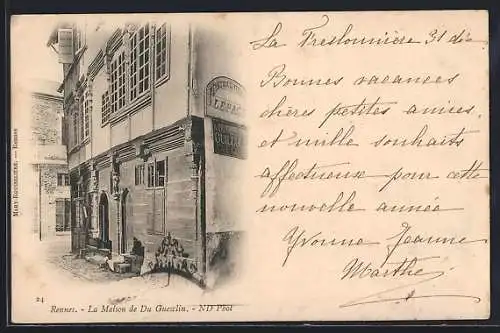 La Freslonnière 31 dé
Bonnes vacances
chères petites amies,
et mille souhaits
affectueux pour cette
nouvelle année
Yvonne Jeanne
Marthe
LEPAG
24
Rennes. - La Maison de Du Guesclin. - ND Phot
MARY-ROUSSELIÈRE. — RENNES